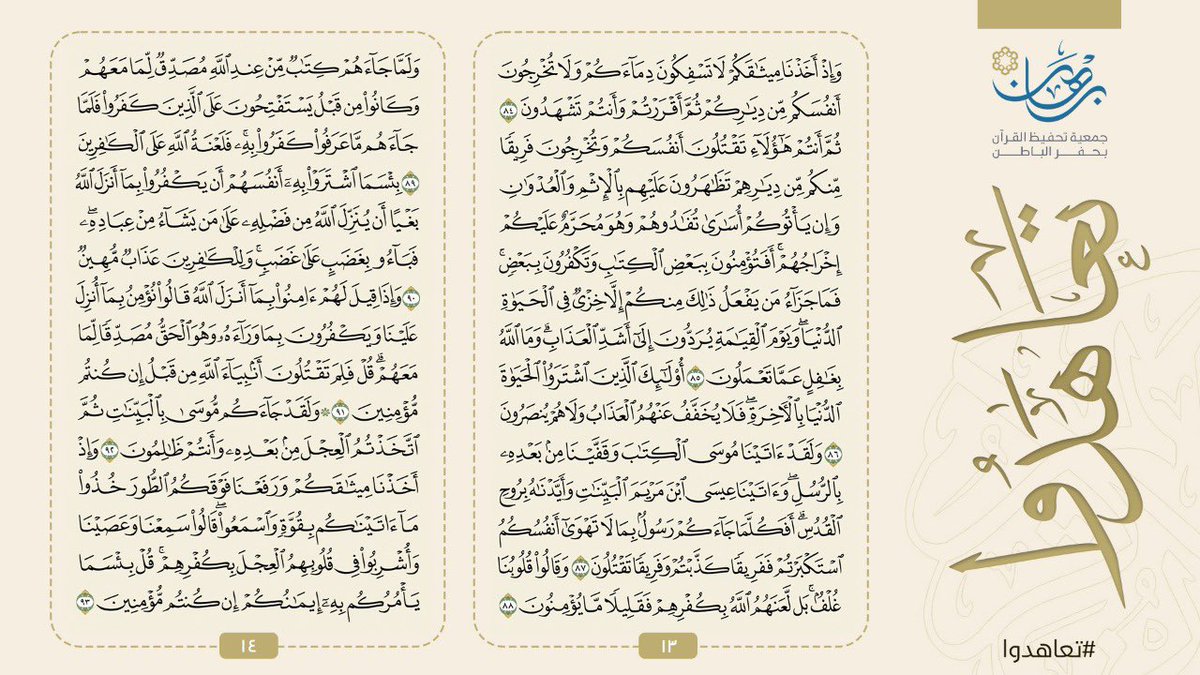 برهان
جمعية تحفيظ القرآن
بحفر الباطن
تعاهدوا
#تعاهدوا
وَإِذْ أَخَذْنَا مِيثَٰقَكُمْ لَا تَسْفِكُونَ دِمَآءَكُمْ وَلَا تُخْرِجُونَ
أَنفُسَكُم مِّن دِيَٰرِكُمْ ثُمَّ أَقْرَرْتُمْ وَأَنتُمْ تَشْهَدُونَ ٨٤
ثُمَّ أَنتُمْ هَٰٓؤُلَآءِ تَقْتُلُونَ أَنفُسَكُمْ وَتُخْرِجُونَ فَرِيقًا
مِّنكُم مِّن دِيَٰرِهِمْ تَظَٰهَرُونَ عَلَيْهِم بِٱلْإِثْمِ وَٱلْعُدْوَٰنِ
وَإِن يَأْتُوكُمْ أُسَٰرَىٰ تُفَٰدُوهُمْ وَهُوَ مُحَرَّمٌ عَلَيْكُمْ
إِخْرَاجُهُمْ ۚ أَفَتُؤْمِنُونَ بِبَعْضِ ٱلْكِتَٰبِ وَتَكْفُرُونَ بِبَعْضٍ ۚ
فَمَا جَزَآءُ مَن يَفْعَلُ ذَٰلِكَ مِنكُمْ إِلَّا خِزْىٌ فِى ٱلْحَيَوٰةِ
ٱلدُّنْيَا ۖ وَيَوْمَ ٱلْقِيَٰمَةِ يُرَدُّونَ إِلَىٰٓ أَشَدِّ ٱلْعَذَابِ ۗ وَمَا ٱللَّهُ
بِغَٰفِلٍ عَمَّا تَعْمَلُونَ ٨٥ أُو۟لَٰٓئِكَ ٱلَّذِينَ ٱشْتَرَوُا۟ ٱلْحَيَوٰةَ
ٱلدُّنْيَا بِٱلْـَٔاخِرَةِ ۖ فَلَا يُخَفَّفُ عَنْهُمُ ٱلْعَذَابُ وَلَا هُمْ يُنصَرُونَ
٨٦ وَلَقَدْ ءَاتَيْنَا مُوسَى ٱلْكِتَٰبَ وَقَفَّيْنَا مِنۢ بَعْدِهِۦ
بِٱلرُّسُلِ ۖ وَءَاتَيْنَا عِيسَى ٱبْنَ مَرْيَمَ ٱلْبَيِّنَٰتِ وَأَيَّدْنَٰهُ بِرُوحِ
ٱلْقُدُسِ ۗ أَفَكُلَّمَا جَآءَكُمْ رَسُولٌۢ بِمَا لَا تَهْوَىٰٓ أَنفُسُكُمُ
ٱسْتَكْبَرْتُمْ فَفَرِيقًا كَذَّبْتُمْ وَفَرِيقًا تَقْتُلُونَ ٨٧ وَقَالُوا۟ قُلُوبُنَا
غُلْفٌۢ ۚ بَل لَّعَنَهُمُ ٱللَّهُ بِكُفْرِهِمْ فَقَلِيلًا مَّا يُؤْمِنُونَ ٨٨
١٣
وَلَمَّا جَآءَهُمْ كِتَٰبٌ مِّنْ عِندِ ٱللَّهِ مُصَدِّقٌ لِّمَا مَعَهُمْ
وَكَانُوا۟ مِن قَبْلُ يَسْتَفْتِحُونَ عَلَى ٱلَّذِينَ كَفَرُوا۟ فَلَمَّا
جَآءَهُم مَّا عَرَفُوا۟ كَفَرُوا۟ بِهِۦ ۚ فَلَعْنَةُ ٱللَّهِ عَلَى ٱلْكَٰفِرِينَ
٨٩ بِئْسَمَا ٱشْتَرَوْا۟ بِهِۦٓ أَنفُسَهُمْ أَن يَكْفُرُوا۟ بِمَآ أَنزَلَ ٱللَّهُ
بَغْيًا أَن يُنَزِّلَ ٱللَّهُ مِن فَضْلِهِۦ عَلَىٰ مَن يَشَآءُ مِنْ عِبَادِهِۦ ۖ
فَبَآءُو بِغَضَبٍ عَلَىٰ غَضَبٍ ۚ وَلِلْكَٰفِرِينَ عَذَابٌ مُّهِينٌ
٩٠ وَإِذَا قِيلَ لَهُمْ ءَامِنُوا۟ بِمَآ أَنزَلَ ٱللَّهُ قَالُوا۟ نُؤْمِنُ بِمَآ أُنزِلَ
عَلَيْنَا وَيَكْفُرُونَ بِمَا وَرَآءَهُۥ وَهُوَ ٱلْحَقُّ مُصَدِّقًا لِّمَا
مَعَهُمْ ۗ قُلْ فَلِمَ تَقْتُلُونَ أَنۢبِيَآءَ ٱللَّهِ مِن قَبْلُ إِن كُنتُم
مُّؤْمِنِينَ ٩١ ۞ وَلَقَدْ جَآءَكُم مُّوسَىٰ بِٱلْبَيِّنَٰتِ ثُمَّ
ٱتَّخَذْتُمُ ٱلْعِجْلَ مِنۢ بَعْدِهِۦ وَأَنتُمْ ظَٰلِمُونَ ٩٢ وَإِذْ
أَخَذْنَا مِيثَٰقَكُمْ وَرَفَعْنَا فَوْقَكُمُ ٱلطُّورَ خُذُوا۟
مَآ ءَاتَيْنَٰكُم بِقُوَّةٍ وَٱسْمَعُوا۟ ۖ قَالُوا۟ سَمِعْنَا وَعَصَيْنَا
وَأُشْرِبُوا۟ فِى قُلُوبِهِمُ ٱلْعِجْلَ بِكُفْرِهِمْ ۚ قُلْ بِئْسَمَا
يَأْمُرُكُم بِهِۦٓ إِيمَٰنُكُمْ إِن كُنتُم مُّؤْمِنِينَ ٩٣
١٤